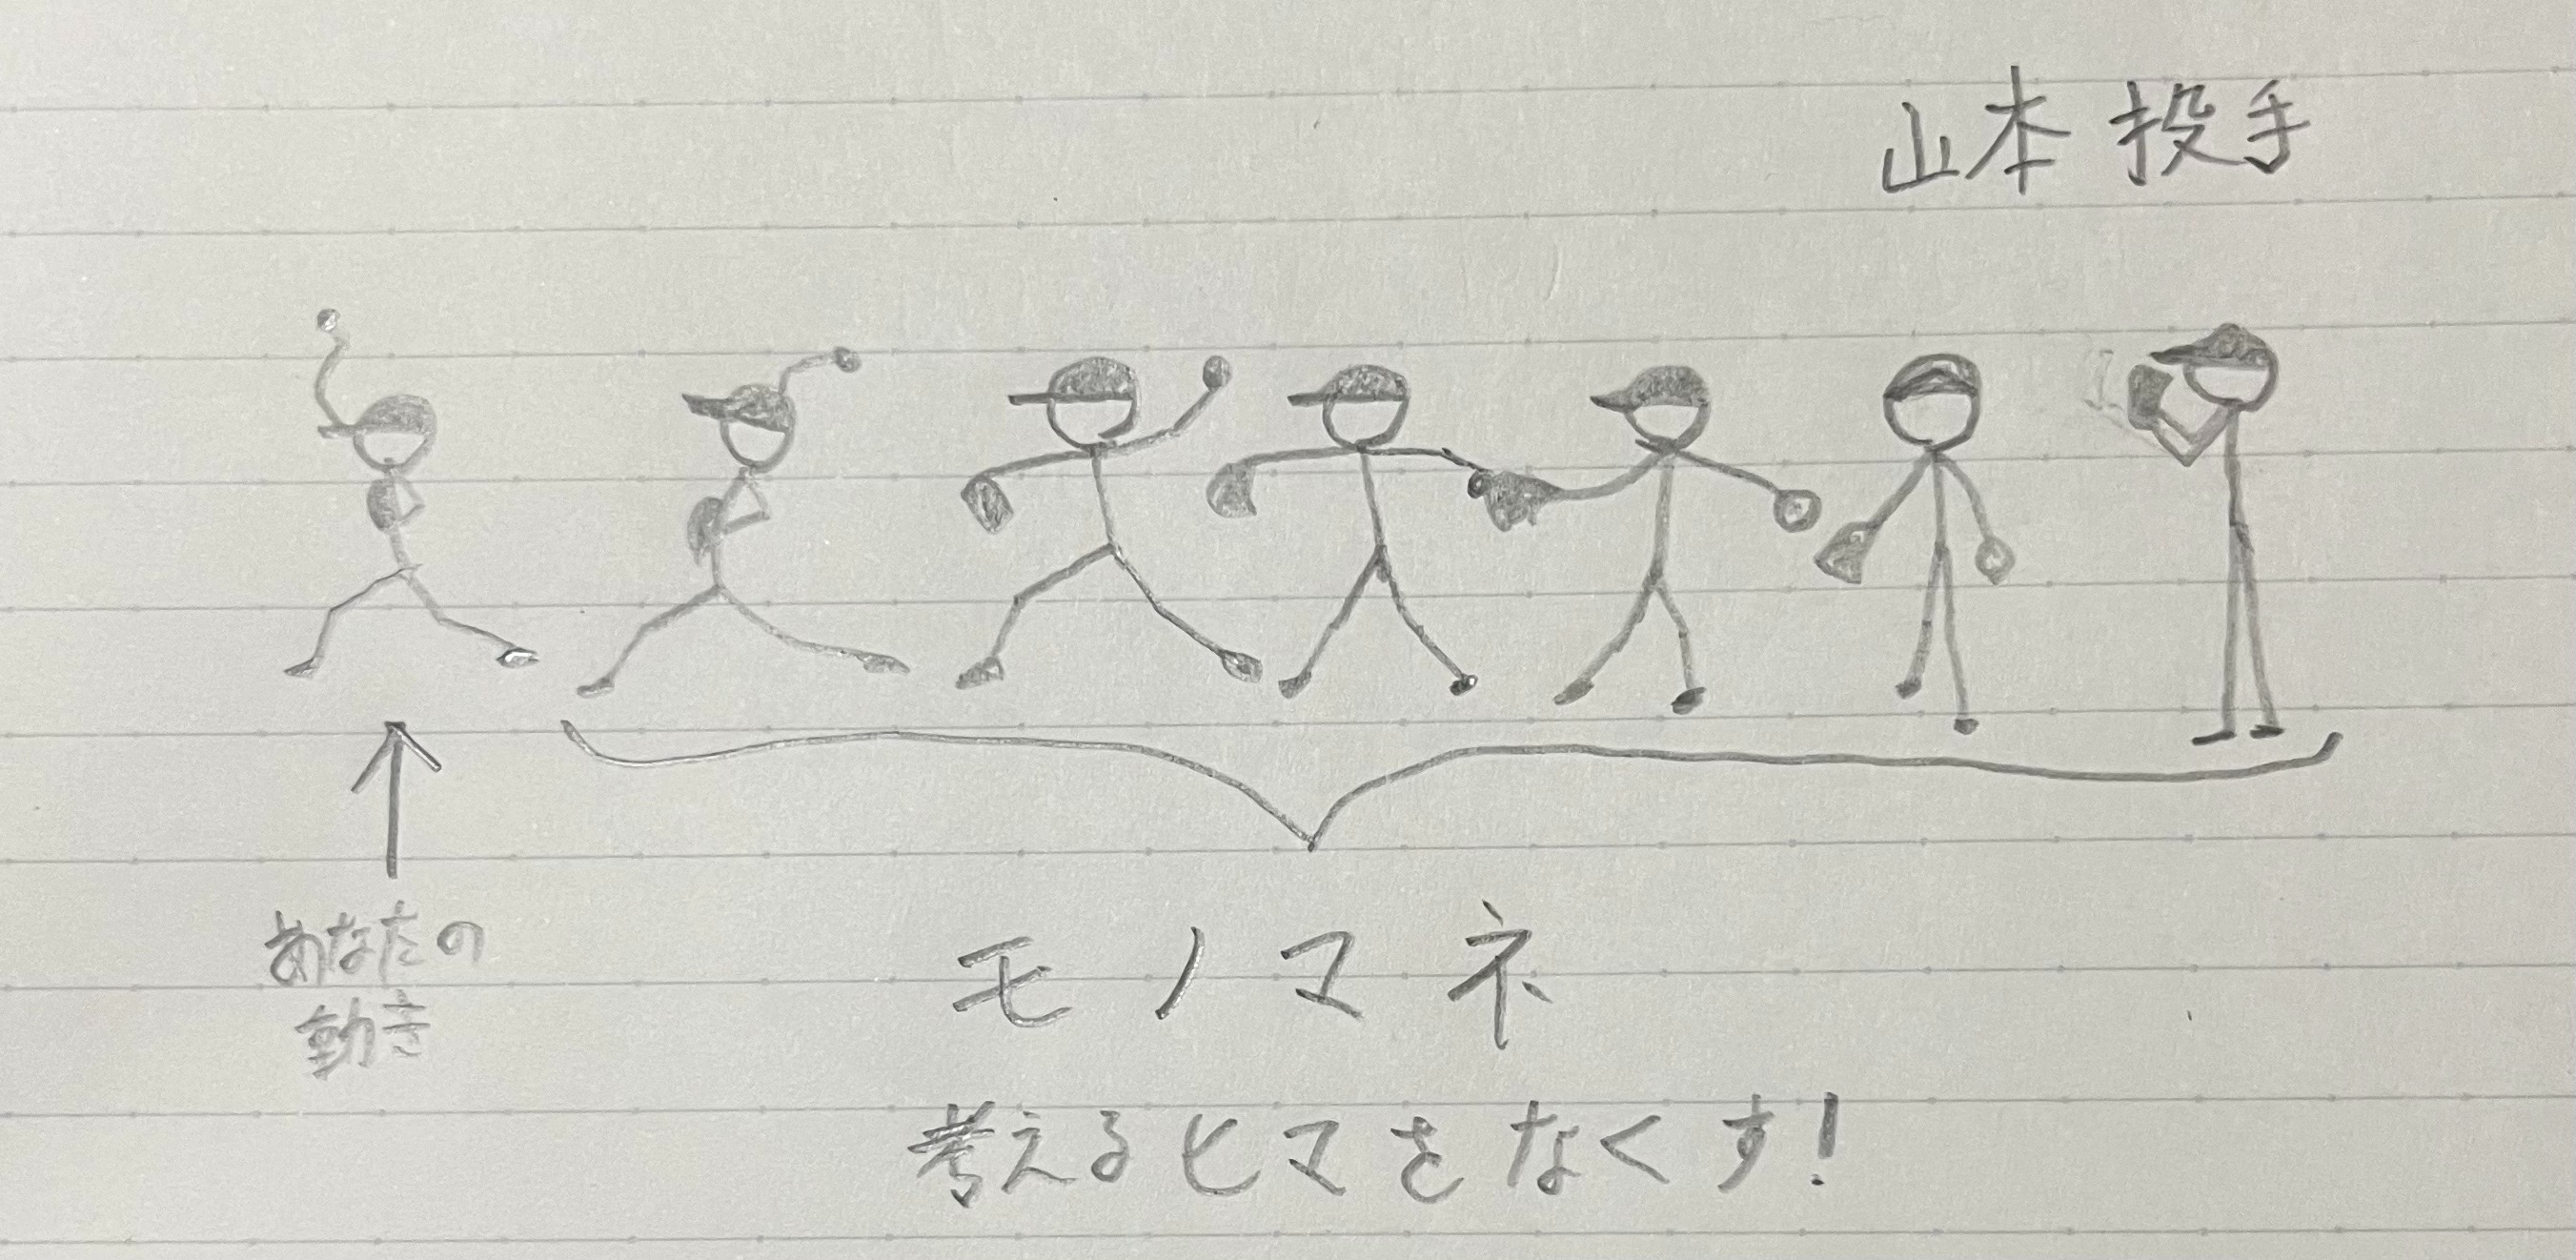 山本 投手
あなたの
動き
モノマネ
考えるヒマをなくす!